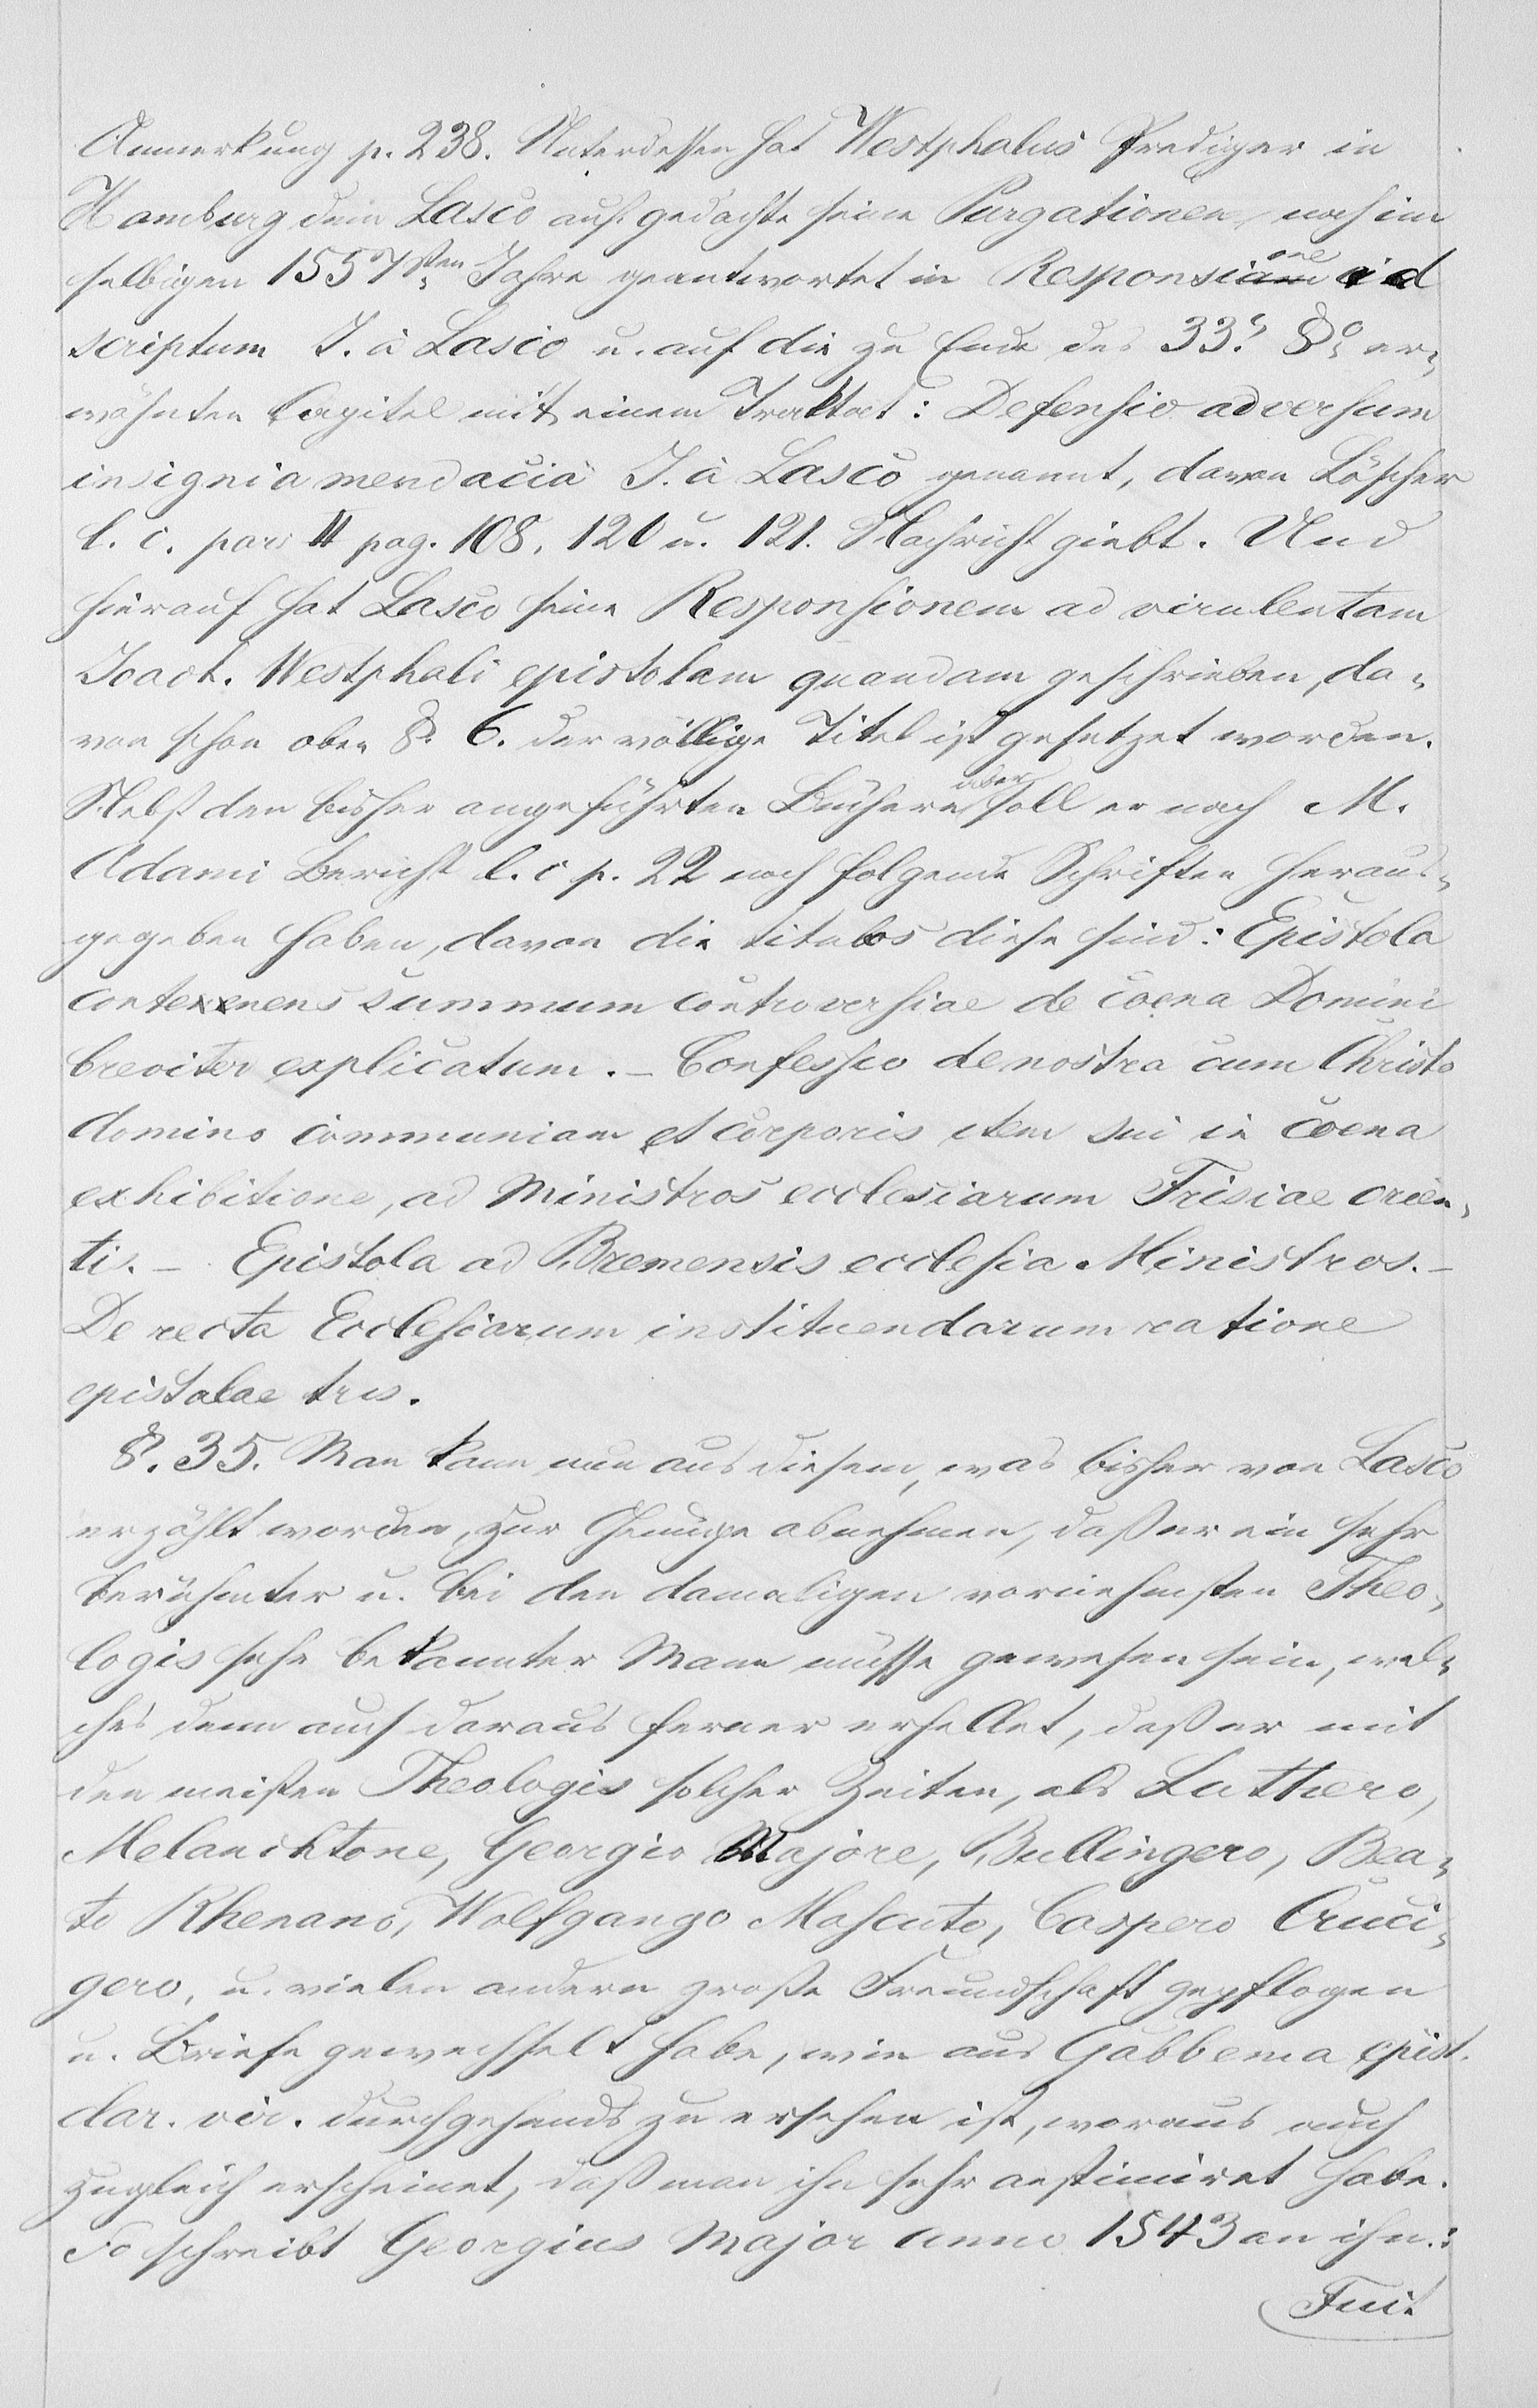 Anmerkung p. 238. Unterdessen hat Westphalus Prediger in
Hamburg dem Lasco auf gedachte seine Purgationen noch im
selbigen 1557sten Jahre geantwortet in Responsione ad
scriptum J. à Lasco u. auf die zu Ende des 33. §. er-
wähnten Capitel mit einem Traktat: Defensio adversum
insignia mendacia J. à Lasco genannt, davon Löscher
l. c. pars II pag. 108. 120 u. 121. Nachricht giebt. Und
hierauf hat Lasco seine Responsionem ad virulentam
Joach. Westphali epistolam quandam geschrieben, da-
von schon oben §. 6. der völlige Titel ist gesetzet worden.
Nebst den bisher angeführten Büchern aber soll er nach M.
Adami Bericht l. c p. 22 noch folgende Schriften heraus-
gegeben haben, davon die titulos diese sind: Epistola
contenens summum controversiae de coena Domini
breviter explicatum. – Confessio de nostra cum Christo
domino communiam et corporis item sui in coena
exhibitione, ad Ministros ecclesiarum Frisiae orien-
tis. – Epistola ad Bremensis ecclesia Ministros. –
De recta Ecclesiarum instituendarum ratione
epistolae tres.
§. 35. Man kann nun aus diesem, was bisher von Lasco
erzählt worden, zur Genüge abnehmen, daß er ein sehr
berühmter u. bei den damaligen vornehmsten Theo-
logis sehr bekannter Mann müsse gewesen sein, wel-
ches denn auch daraus ferner erhellet, daß er mit
den meisten Theologis solcher Zeiten, als Luthero,
Melanchtone, Georgio Majore, Bullingero, Bea-
to Rhenano, Wolfgango Musculo, Caspero Cruci-
gero, u. vielen andern große Freundschaft gepflogen
u. Briefe gewechselt habe, wie aus Gabbema epist.
clar. vir. durchgehends zu ersehen ist, woraus auch
zugleich erscheinet, daß man ihn sehr aestimiret habe.
So schreibt Georgius Major anno 1543 an ihn:
Fuit